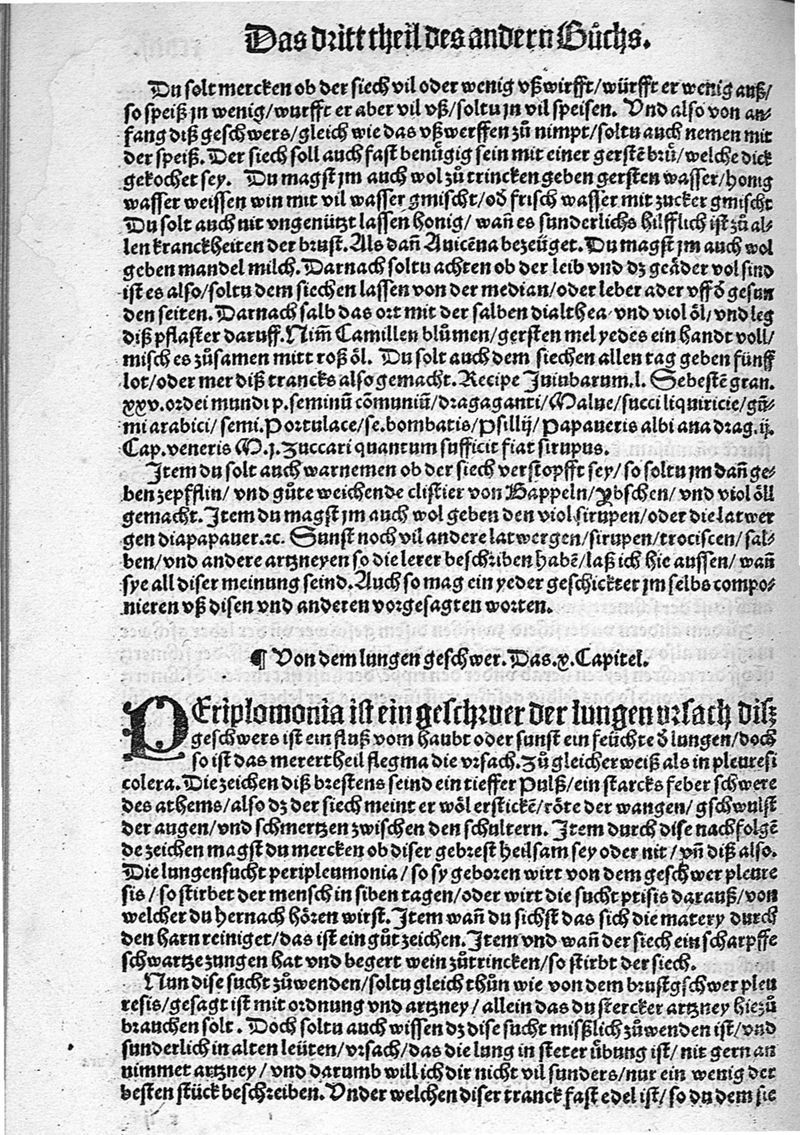 Das dritt theil des andern Bůchs.
Du solt mercken ob der siech vil oder wenig vßwirfft/würfft er wenig auß/
so speiß jn wenig/wurfft er aber vil vß/soltu jn vil speisen. Vnd also von an⸗
fang diß geschwers/gleich wie das vßwerffen zů nimpt/soltu auch nemen mit
der speiß. Der siech soll auch fast benügig sein mit einer gerstē brů/welche dick
gekochet sey. Du magst jm auch wol zů trincken geben gersten wasser/honig
wasser weissen win mit vil wasser gmischt/od̄ frisch wasser mit zucker gmischt
Du solt auch nit vngenützt lassen honig/ wañ es sunderlichs hilfflich ist zů al⸗
len kranckheiten der brust. Als dañ Auicēna bezeüget. Du magst jm auch wol
geben mandel milch. Darnach soltu achten ob der leib vnd dz geäder vol sind
ist es also/soltu dem siechen lassen von der median/oder leber ader vff d̄ gesun
den seiten. Darnach salb das ort mit der salben dialthea vnd viol öl/vnd leg
diß pflaster daruff. Nim̄ Camillen blůmen/gersten mel yedes ein handt voll/
misch es zůsamen mitt roß öl. Du solt auch dem siechen allen tag geben fünff
lot/oder mer diß trancks also gemacht. Recipe Juiubarum.l. Sebestē gran.
xxv.ordei mundi p.seminū cōmuniū/dragaganti/Malue/succi liquiricie/gū⸗
mi arabici/semi.Portulace/se.bombatis/Psillij/Papaueris albi ana drag.ij.
Cap.veneris M.j.zuccari quantum sufficit fiat sirupus.
Item du solt auch warnemen ob der siech verstopfft sey/so soltu jm dañ ge⸗
ben zepfflin/ vnd gůte weichende clistier von Pappeln/ybschen/ vnd viol öll
gemacht. Item du magst jm auch wol geben den viol sirupen/oder die latwer
gen diapapauer.ꝛc. Sunst noch vil andere latwergen/sirupen/trociscen/sal⸗
ben/vnd andere artzneyen so die lerer beschriben habē/laß ich hie aussen/ wañ
sye all diser meinung seind. Auch so mag ein yeder geschickter jm selbs compo⸗
nieren vß disen vnd anderen vorgesagten worten.
¶ Von dem lungen geschwer. Das.x.Capitel.
PEriplomonia ist ein geschwer der lungen vrsach disz
geschwers ist ein fluß vom haubt oder sunst ein feüchte d̄ lungen/doch
so ist das merertheil flegma die vrsach. Zů gleicher weiß als in pleuresi
colera. Die zeichen diß brestens seind ein tieffer Pulß/ein starcks feber schwere
des athems/also dz der siech meint er wöl ersticken/röte der wangen/gschwulst
der augen/vnd schmertzen zwischen den schultern. Item durch dise nachfolgē
de zeichen magstu mercken ob diser gebrest heilsam sey oder nit/ vñ diß also.
Die lungensucht peripleumonia/so sy geboren wirt von dem geschwer pleure
sis/so stirbet der mensch in siben tagen/oder wirt die sucht ptisis darauß/von
welcher du hernach hören wirst. Item wañ du sichst das sich die matery durch
den harn reiniget/das ist ein gůt zeichen. Item vnd wañ der siech ein scharpffe
schwartze zungen hat vnd begert wein zůtrincken/so stirbt der siech.
Nun dise sucht zůwenden/soltu gleich thůn wie von dem brustgschwer pleu
resis/gesagt ist mit ordnung vnd artzney/allein das du stercker artzney hiezů
brauchen solt. Doch soltu auch wissen dz dise sucht mißlich zůwenden ist/vnd
sunderlich in alten leüten/vrsach/das die lung in steter übung ist/nit gern an
nimmet artzney/ vnd darumb will ich dir nicht vil sunders/nur ein wenig der
besten stück beschreiben. Vnder welchen diser tranck fast edel ist/so du dem sie